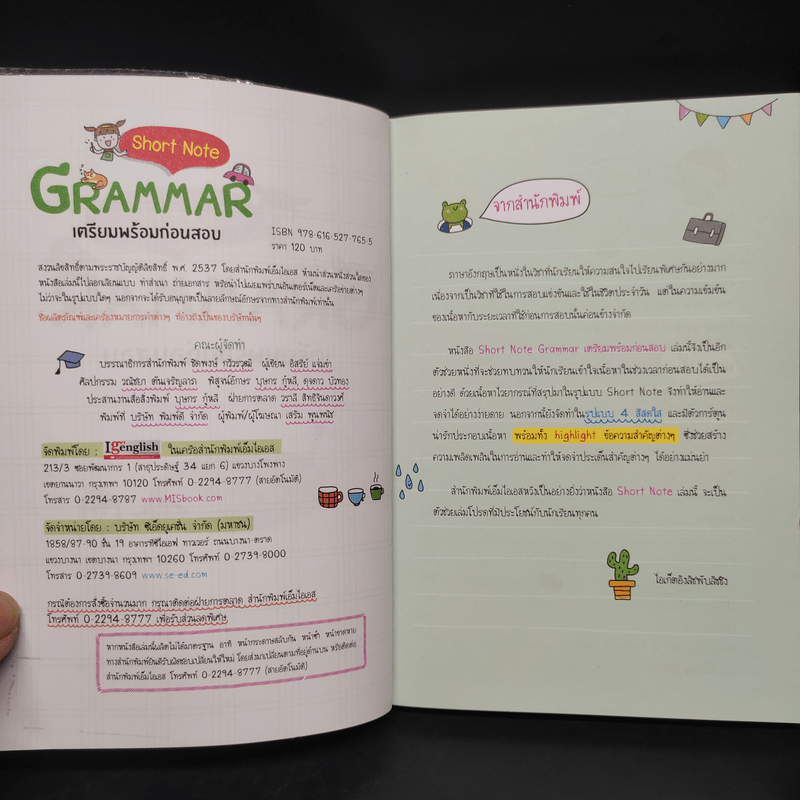 Short Note
GRAMMAR
เตรียมพร้อมก่อนสอบ
ISBN 978-616-527-765-5
ราคา 120 บาท
สงวนลิขสิทธิ์ตามพระราชบัญญัติลิขสิทธิ์ พ.ศ. 2537 โดยสำนักพิมพ์เอ็มไอเอส ห้ามนำส่วนหนึ่งส่วนใดของ
หนังสือเล่มนี้ไปลอกเลียนแบบ ทำสำเนา ถ่ายเอกสาร หรือนำไปเผยแพร่บนอินเตอร์เน็ตและเครือข่ายต่างๆ
ไม่ว่าจะในรูปแบบใดๆ นอกจากจะได้รับอนุญาตเป็นลายลักษณ์อักษรจากทางสำนักพิมพ์เท่านั้น
ชื่อผลิตภัณฑ์และเครื่องหมายการค้าต่างๆ ที่อ้างถึงเป็นของบริษัทนั้นๆ
คณะผู้จัดทำ
บรรณาธิการสำนักพิมพ์ ชิดพงษ์ กวีวรวุฒิ ผู้เขียน อิสรีย์ แจ่มขำ
ศิลปกรรม วณิชยา ตันเจริญลาภ พิสูจน์อักษร บุษกร กู้หลี, ดุจดาว บัวทอง
ประสานงานสื่อสิ่งพิมพ์ บุษกร กู้หลี ฝ่ายการตลาด วราลี สิทธิจินดาวงศ์
พิมพ์ที่ บริษัท พิมพ์ดี จำกัด ผู้พิมพ์/ผู้โฆษณา เสริม พูนพนิช
จัดพิมพ์โดย : Igenglish ในเครือสำนักพิมพ์เอ็มไอเอส
213/3 ซอยพัฒนาการ 1 (สาธุประดิษฐ์ 34 แยก 6) แขวงบางโพงพาง
เขตยานนาวา กรุงเทพฯ 10120 โทรศัพท์ 0-2294-8777 (สายอัตโนมัติ)
โทรสาร 0-2294-8787 www.MISbook.com
จัดจำหน่ายโดย : บริษัท ซีเอ็ดยูเคชั่น จำกัด (มหาชน)
1858/87-90 ชั้น 19 อาคารทีซีไอเอฟ ทาวเวอร์ ถนนบางนา-ตราด
แขวงบางนา เขตบางนา กรุงเทพฯ 10260 โทรศัพท์ 0-2739-8000
โทรสาร 0-2739-8609 www.se-ed.com
กรณีต้องการสั่งซื้อจำนวนมาก กรุณาติดต่อฝ่ายการตลาด สำนักพิมพ์เอ็มไอเอส
โทรศัพท์ 0-2294-8777 เพื่อรับส่วนลดพิเศษ
หากหนังสือเล่มนี้ผลิตไม่ได้มาตรฐาน อาทิ หน้ากระดาษสลับกัน หน้าซ้ำ หน้าขาดหาย
ทางสำนักพิมพ์ยินดีรับผิดชอบเปลี่ยนให้ใหม่ โดยส่งมาเปลี่ยนตามที่อยู่ด้านบน หรือติดต่อ
สำนักพิมพ์เอ็มไอเอส โทรศัพท์ 0-2294-8777 (สายอัตโนมัติ)
จากสำนักพิมพ์
ภาษาอังกฤษเป็นหนึ่งในวิชาที่นักเรียนให้ความสนใจไปเรียนพิเศษกันอย่างมาก
เนื่องจากเป็นวิชาที่ใช้ในการสอบแข่งขันและใช้ในชีวิตประจำวัน แต่ในความเข้มข้น
ของเนื้อหากับระยะเวลาที่ใช้ก่อนการสอบนั้นค่อนข้างจำกัด
หนังสือ Short Note Grammar เตรียมพร้อมก่อนสอบ เล่มนี้จึงเป็นอีก
ตัวช่วยหนึ่งที่จะช่วยทบทวนให้นักเรียนเข้าใจเนื้อหาในช่วงเวลาก่อนสอบได้เป็น
อย่างดี ด้วยเนื้อหาไวยากรณ์ที่สรุปมาในรูปแบบ Short Note จึงทำให้อ่านและ
จดจำได้อย่างง่ายดาย นอกจากนี้ยังจัดทำในรูปแบบ 4 สีสดใส และมีตัวการ์ตูน
น่ารักประกอบเนื้อหา พร้อมทั้ง highlight ข้อความสำคัญต่างๆ ซึ่งช่วยสร้าง
ความเพลิดเพลินในการอ่านและทำให้จดจำประเด็นสำคัญต่างๆ ได้อย่างแม่นยำ
สำนักพิมพ์เอ็มไอเอสหวังเป็นอย่างยิ่งว่าหนังสือ Short Note เล่มนี้ จะเป็น
ตัวช่วยเล่มโปรดที่มีประโยชน์กับนักเรียนทุกคน
ไอเก็ตอิงลิชพับลิชชิง